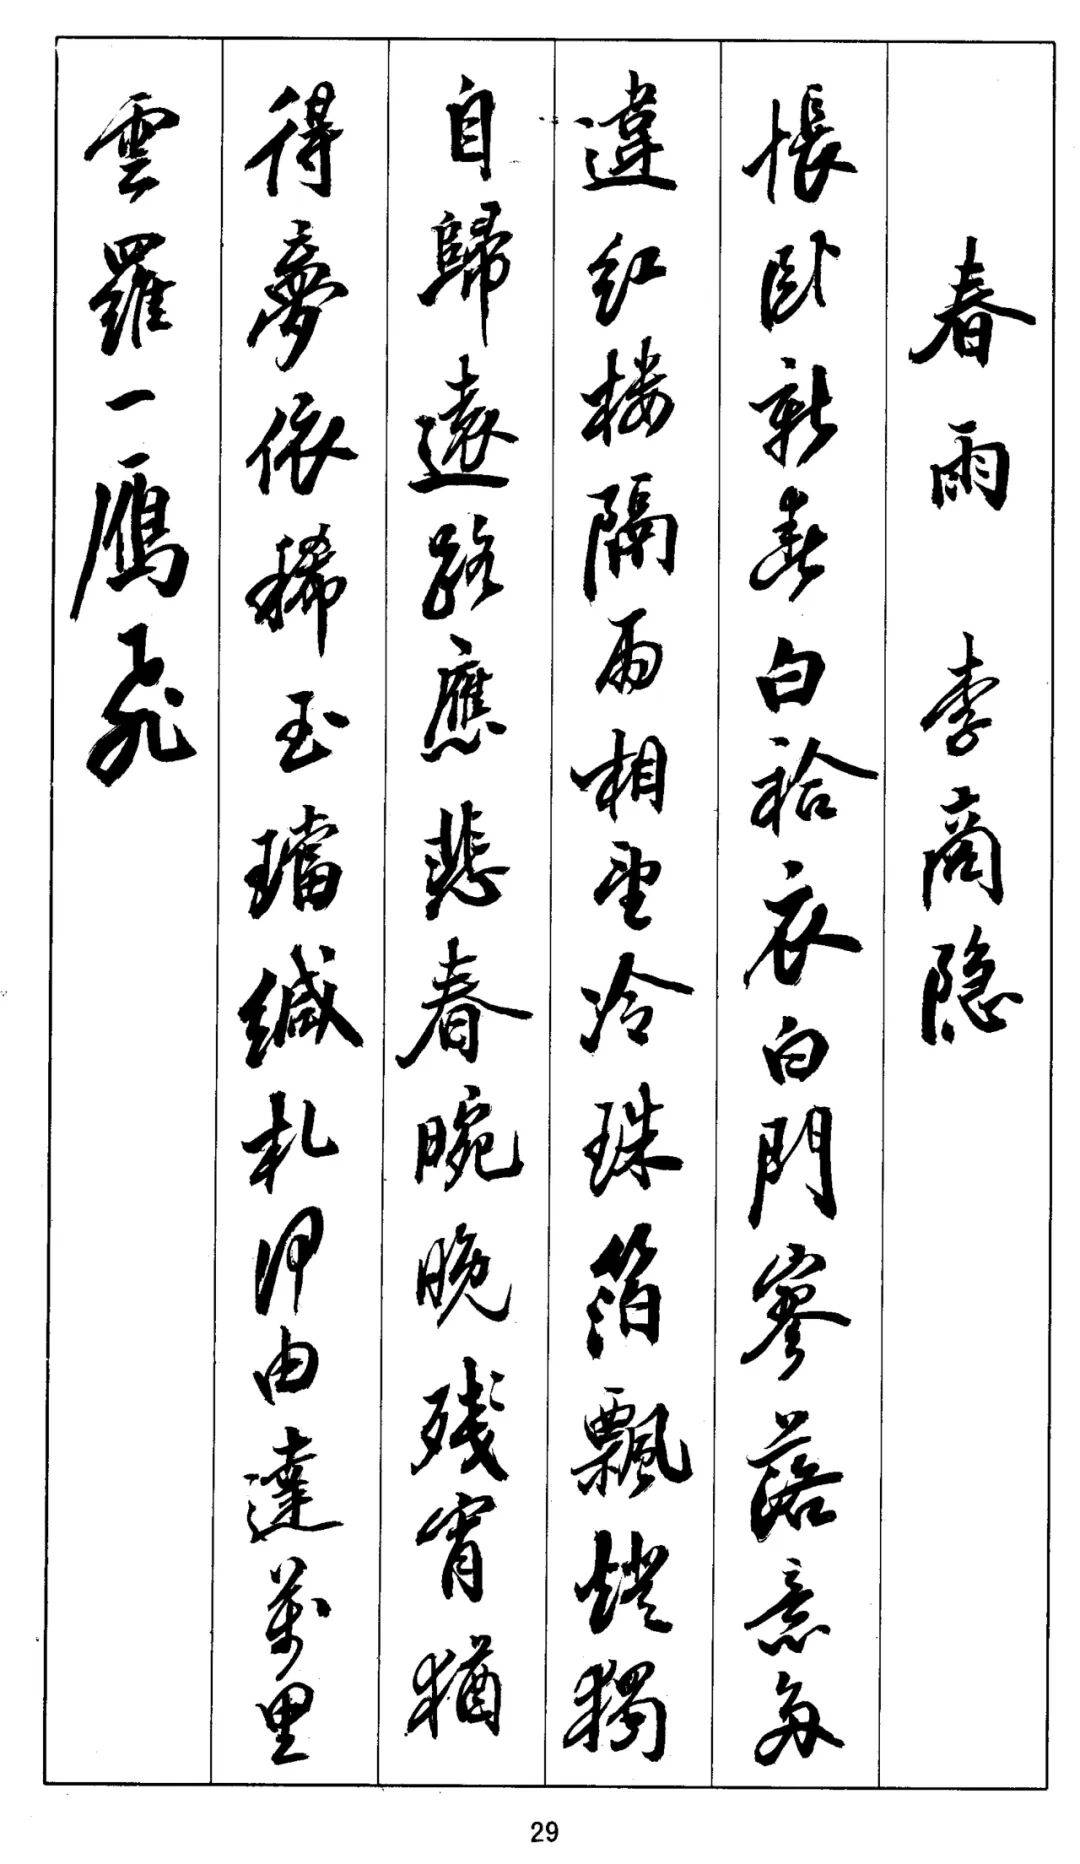 春雨 李商隐
悵卧新春白袷衣白門寥落意多
違红楼隔雨相望冷珠箔飄燈獨
自歸遠路應悲春晼晚残宵猶
得夢依稀玉璫緘札何由達萬里
雲羅一鴈飛
29